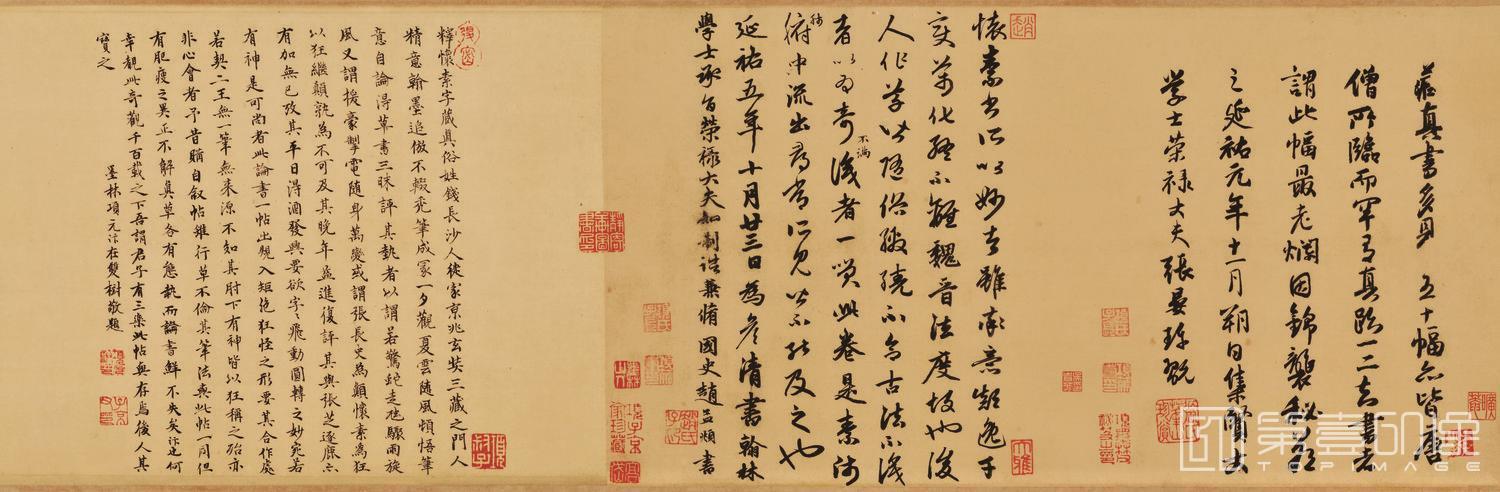 藏真書多見五十幅，然皆唐
僧所臨，而罕有真跡。一二知書者
謂此幅最老爛，因錦襲秘藏
之。延祐元年十一月朔日，集賢大
學士榮祿大夫張晏珍玩
懷素書所以妙者，雖率意顛逸，千
變萬化，終不離魏晉法度故也。後
人作草，皆隨俗繳繞，不合古法，不識
者以為奇，不滿識者一笑。此卷是素師
肺腑中流出，尋常所見皆不能及之也
延祐五年十月廿三日為彥清書翰林
學士承旨榮祿大夫知制誥兼脩國史趙孟頫書
釋懷素字藏真俗姓錢長沙人徙家京兆玄奘三藏之門人
精意翰墨追倣不輟禿筆成冢一夕觀夏雲隨風頓悟筆
意自謂得草書三昧評其執者以謂若驚蛇走虺驟雨旋
風又謂援豪掣電隨身萬變或謂張長史為顛懷素為狂
以狂繼顛孰為不可及其晚年益進復評其與張芝逐鹿六
有加無已攷其平日得酒發興要欲字字飛動圓轉之妙宛若
有神是可尚者此論書一帖出規入矩絕狂怪之形要其合作處
若契二王無一筆無來源不知其肘下有神皆以狂稱之殆亦
非心會者予昔購自叙帖雖行草不倫其筆法與此帖一同但
有肥瘦之異正不解真草各有態執而論書鮮不失矣汴何
幸覩此奇觀千百載之下吾謂君子有三樂此帖與存焉後人其
寶之
墨林項元汴在雙樹敬題
第壹印象
TOPIMAGE